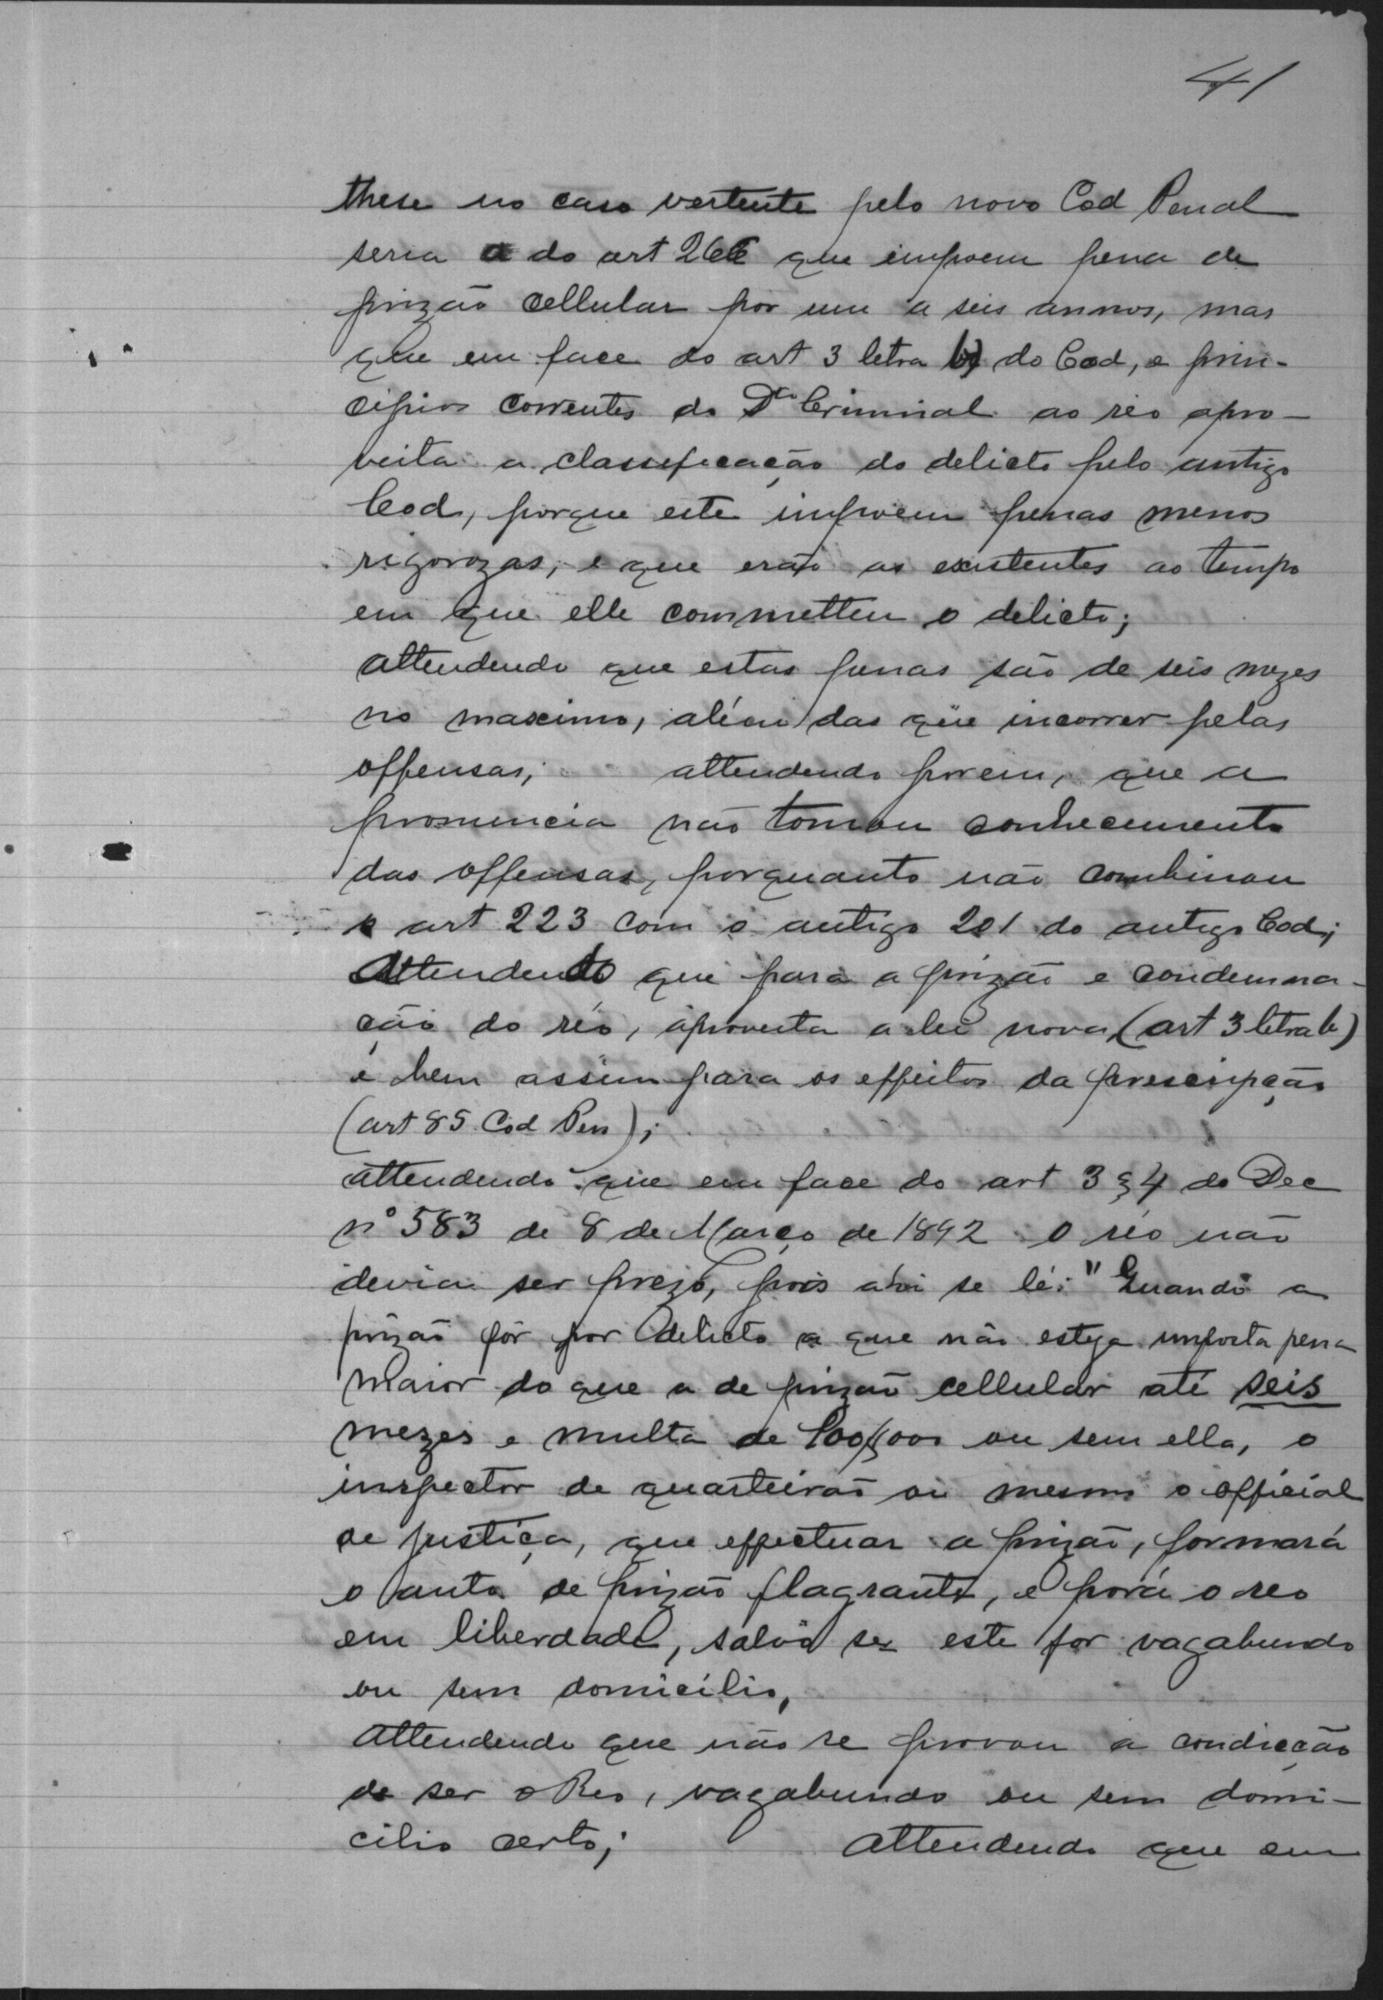 41
these no caso vertente pelo novo Cod Penal
seria a do art 266 que impoem pena de
prizão cellular por um a seis annos, mas
que em face do art 3 letra b) do Cod, e prin-
cipios correntes do Dto Criminal ao réo apro-
veita a classificação do delicto pelo antigo
Cod, porque este impoem penas menos
rigorozas, e que erão as existentes ao tempo
em que elle commetteu o delicto;
attendendo que estas penas são de seis mezes
no maximo, alem das que incorrer pelas
offensas; attendendo porem, que a
pronuncia não tomou conhecimento
das offensas, porquanto não combinou
o art 223 com o antigo 201 do antigo Cod;
Attendendo que para a prizão e condemna-
ção do réo, aproveita a lei nova, (art 3 letra b)
e bem assim para os effeitos da prescripção
(art 85 Cod Pen);
attendendo que em face do art 3 § 4 do Dec
nº 583 de 8 de Março de 1892 o réo não
devia ser prezo, pois ahi se lé: "Quando a
prizão fôr por delicto a que não esteja imposta pena
maior do que a de prizão cellular até seis
mezes e multa de 100$000 ou sem ella, o
inspector de quarteirão ou mesmo o official
de justiça, que effectuar a prizão, formará
o auto de prizão flagrante, e porá o reo
em liberdade, salvo se este for vagabundo
ou sem domicilio,
Attendendo que não se provou a condicção
de ser o Reo, vagabundo ou sem domi-
cilio certo; Attendendo que em